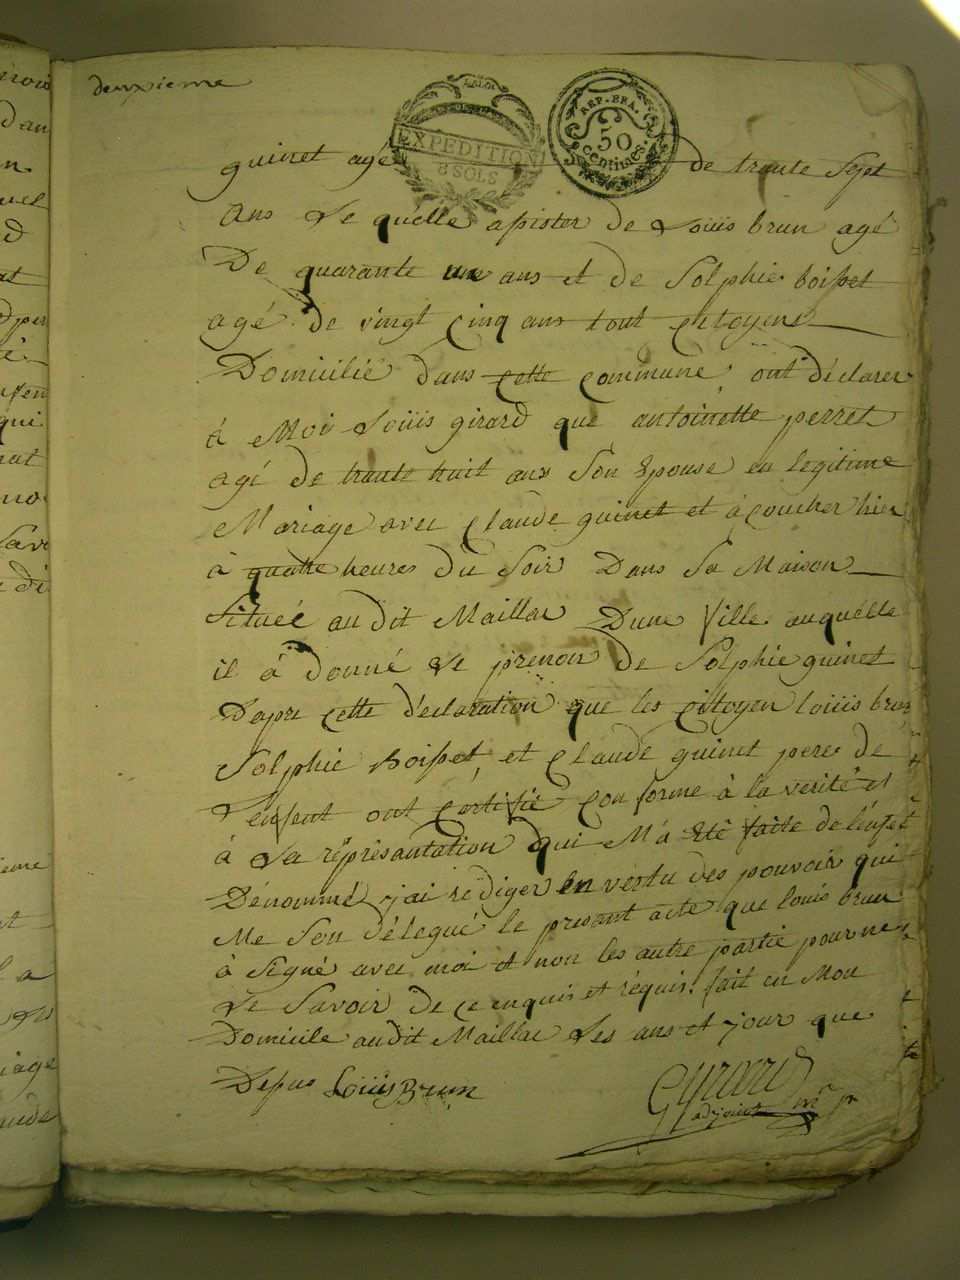 deuxieme
LA LOI
EXPEDITION
8 SOLS
REP. FRA.
50
centimes.
guinet agé de trante Sept
ans Le quelle apister de Louis brun agé
De quarante une ans et de Solphie boisset
agé de vingt Cinq ans tout Citoyens
Domicilié dans Cette Commune, ont déclarer
à Moi Louis girard que antoinette perret
agé de trante huit ans Son Epouse en legitime
Mariage avec Claude guinet et àcoucher hier
à quatre heures Du Soir Dans Sa Maison
Situeé audit Maillac Dune fille auquelle
il à donné Le prenon De Solphie guinet
Dapre Cette déclaration que les Citoyen louis brun
Solphie Boisset et Claude guinet pere de
L'enfent ont Certifié Conforme à la verité et
à La représantation qui M'a Eté faite de l'enfet
Dénommé j'ai rédiger en vertu des pouvoir qui
Me Son délegué le présant acte que louis brun
à Signé avec moi et non les autre partie pour ne
Le Savoir de ce enquis et réquis. fait en Mon
Domicile audit Maillac Les ans et jour que
Depus Loüis Brun
Gyrard
adjoint